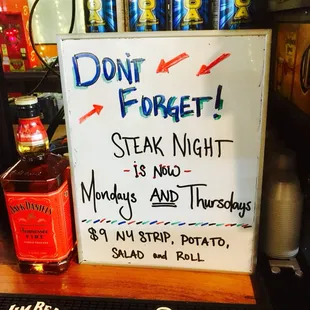 DON'T
FORGET!
STEAK NIGHT
- IS NOW -
Mondays AND Thursdays
$9 NY STRIP, POTATO,
SALAD and ROLL
JACK DANIEL'S